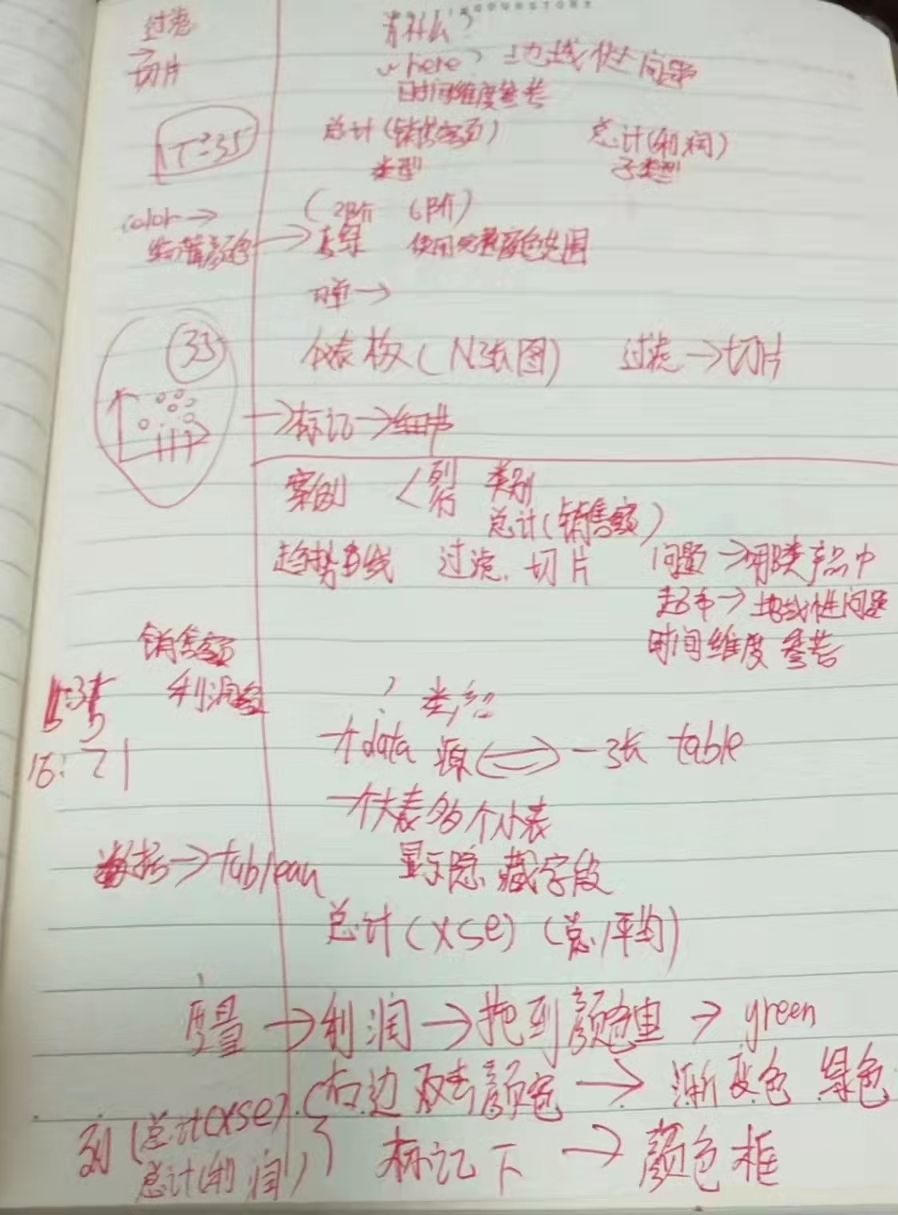 过滤 有什么?
→
切片 where? 地域性问题
时间维度参考
总计(销售额) 总计(利润)
类型 子类型
color→ (2阶 6阶)
编辑颜色→ 使用完整颜色范围
33
仪表板(N张图) 过滤→切片
→标记→细节
案例 <列 类别
行 总计(销售额)
趋势直线 过滤、切片 问题→哪类产品中
→地域性问题
时间维度 参考
销售额
利润
16:21
个data源⇌一张 table
一个大表 多个小表
数据→tableau 显示隐藏字段
总计(xse) (总/平均)
度量→利润→拖到颜色里→green
(右边双击颜色→渐变色 绿色
列(总计(xse)
总计(利润) 标记下→颜色框